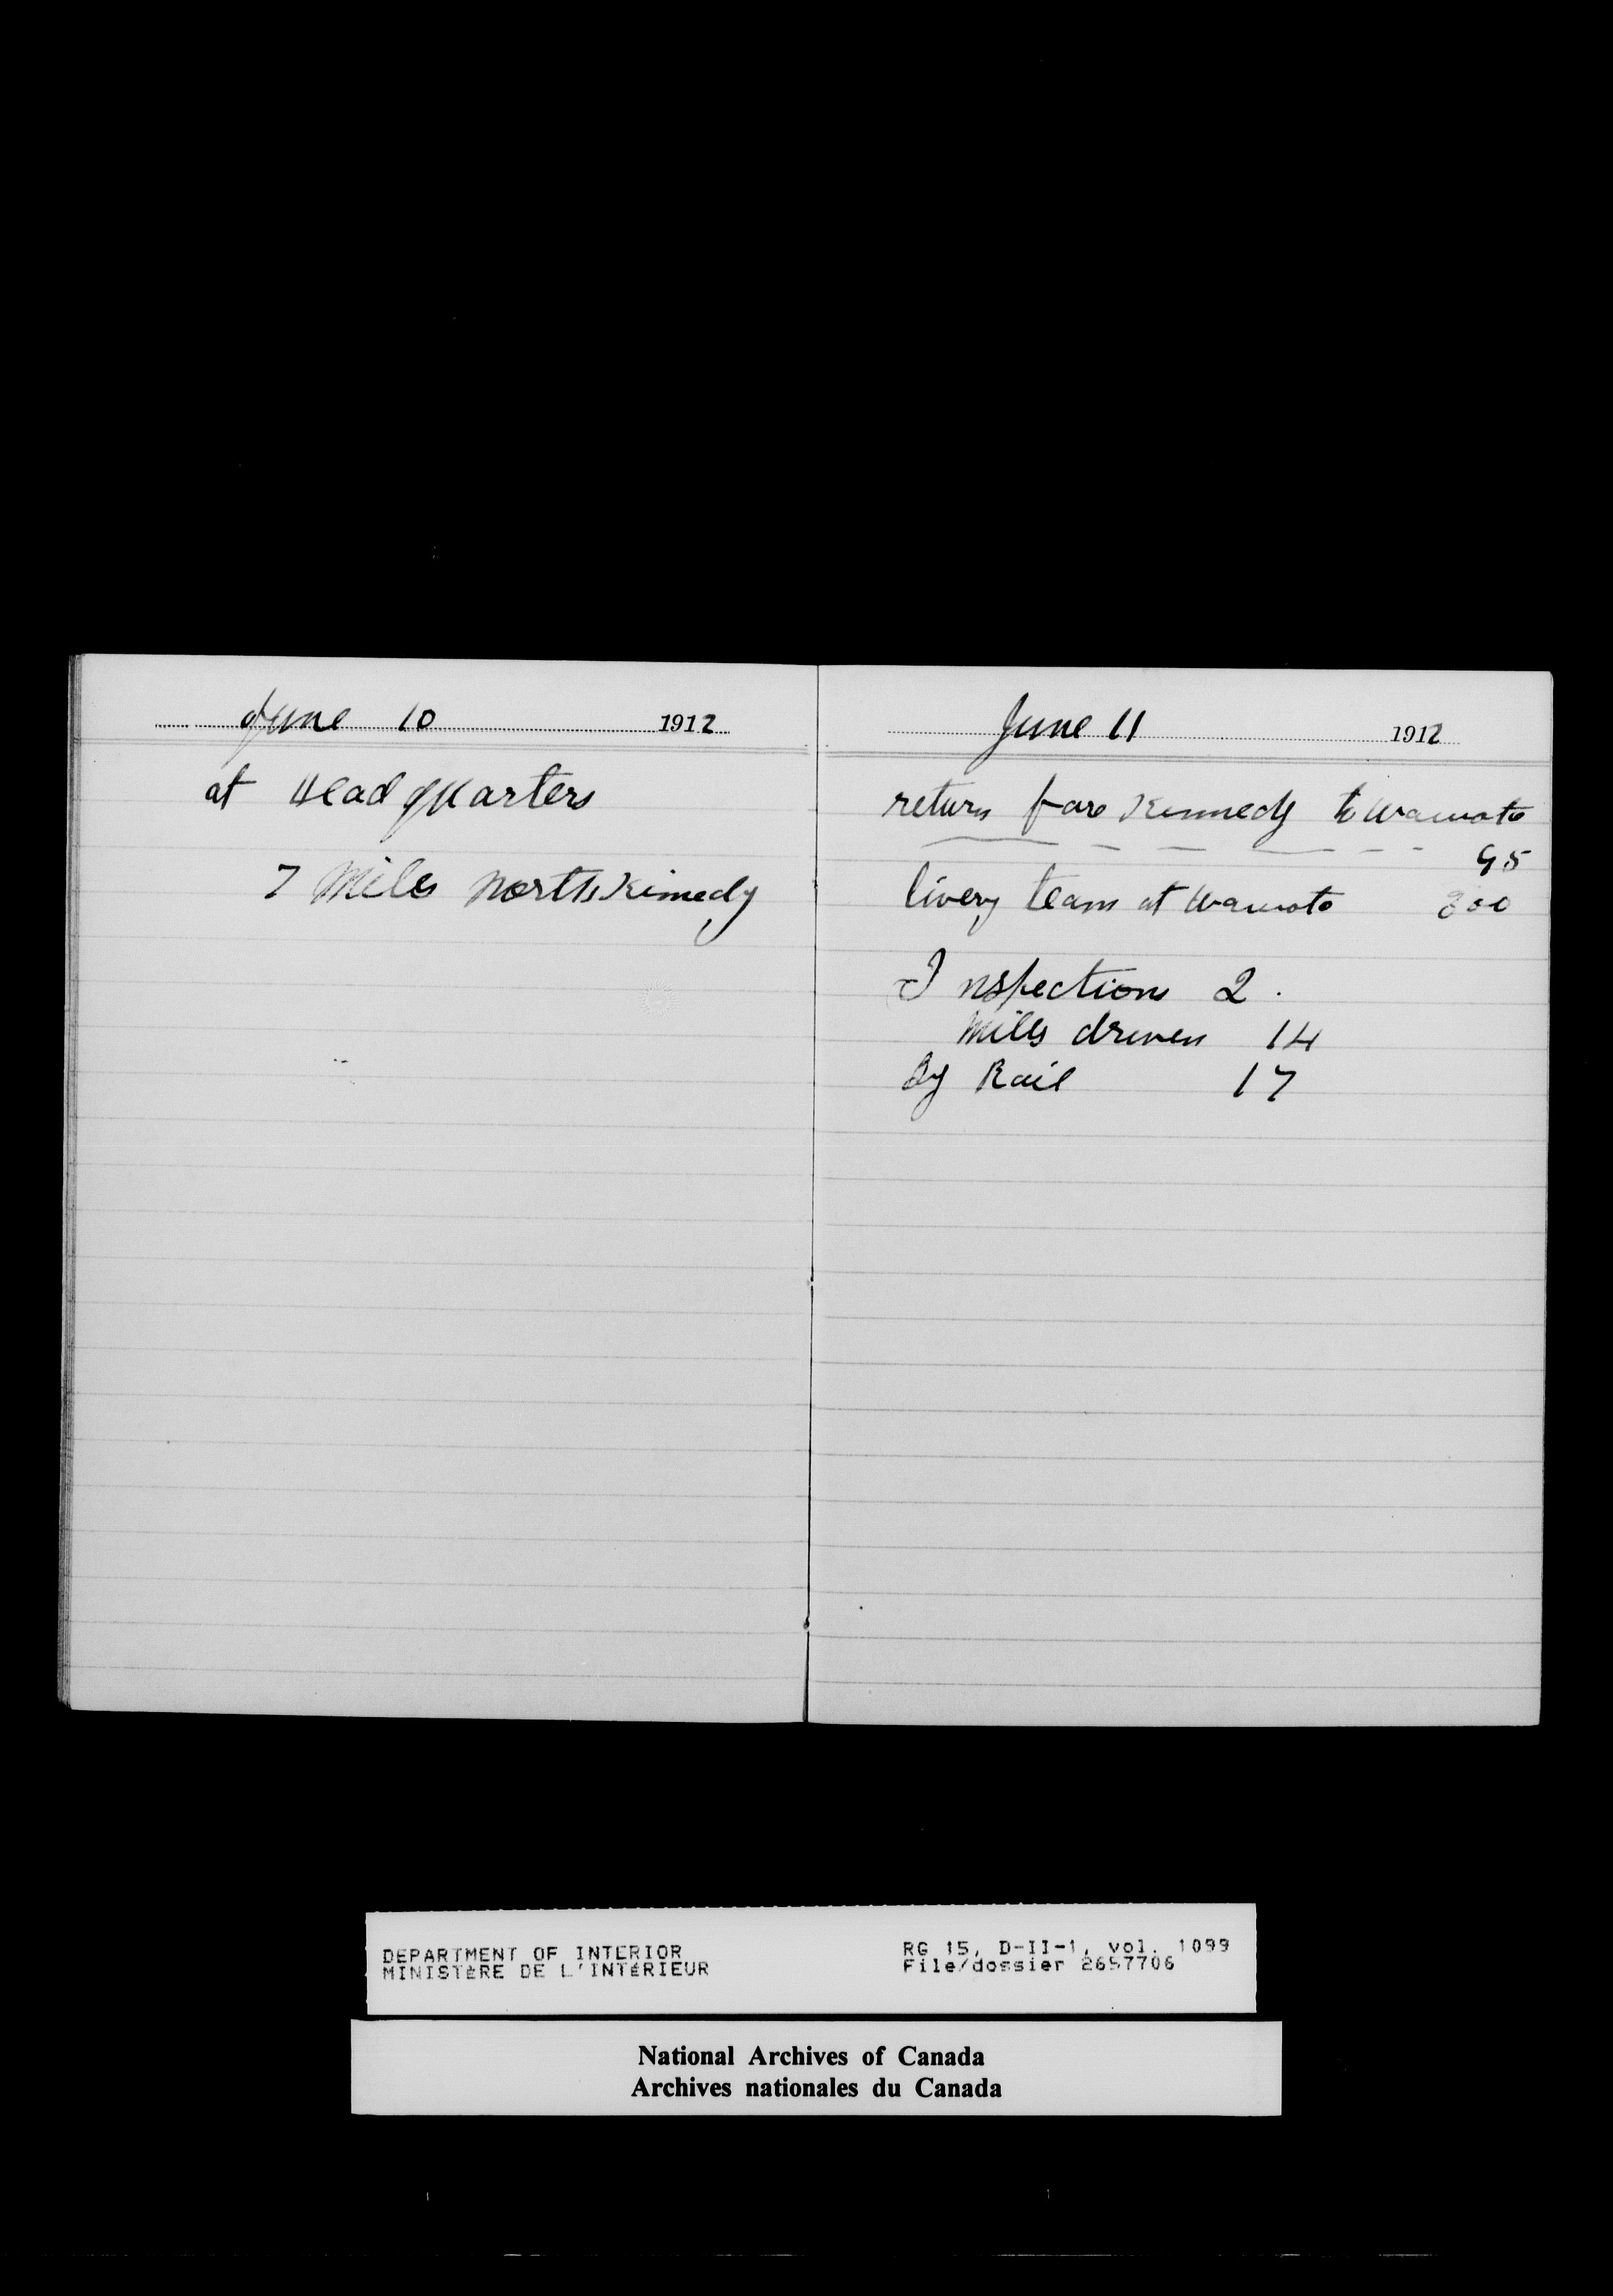 June 10 1912
at Head quarters
7 Miles north Kennedy
June 11 1912
return fare Kennedy to Wawota
95
livery team at Wawota 300
Inspections 2.
Miles driven 14
By Rail 17
DEPARTMENT OF INTERIOR
MINISTÈRE DE L'INTÉRIEUR
RG 15, D-II-1, vol. 1099
File/dossier 2657706
National Archives of Canada
Archives nationales du Canada